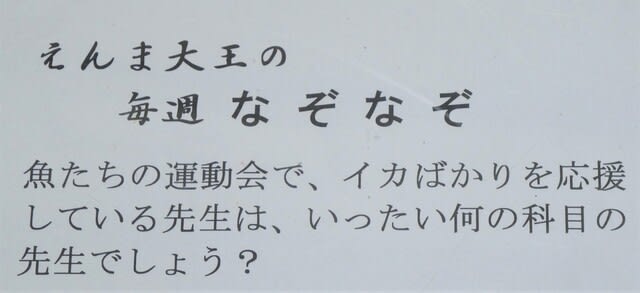 えんま大王の
毎週 なぞなぞ
魚たちの運動会で、イカばかりを応援
している先生は、いったい何の科目の
先生でしょう？